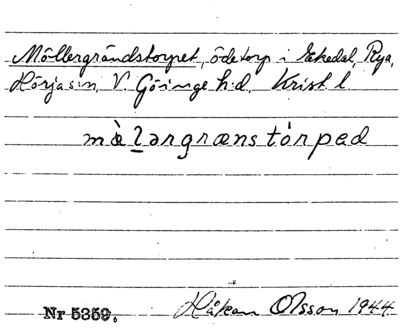 Möllergrändstorpet, ödetorp i Ekedal, Rya,
Hörja s:n, V. Göinge h:d. Krist. l.
mø̀lərgrænstórpəd
Nr 5359. Håkan Olsson 1944